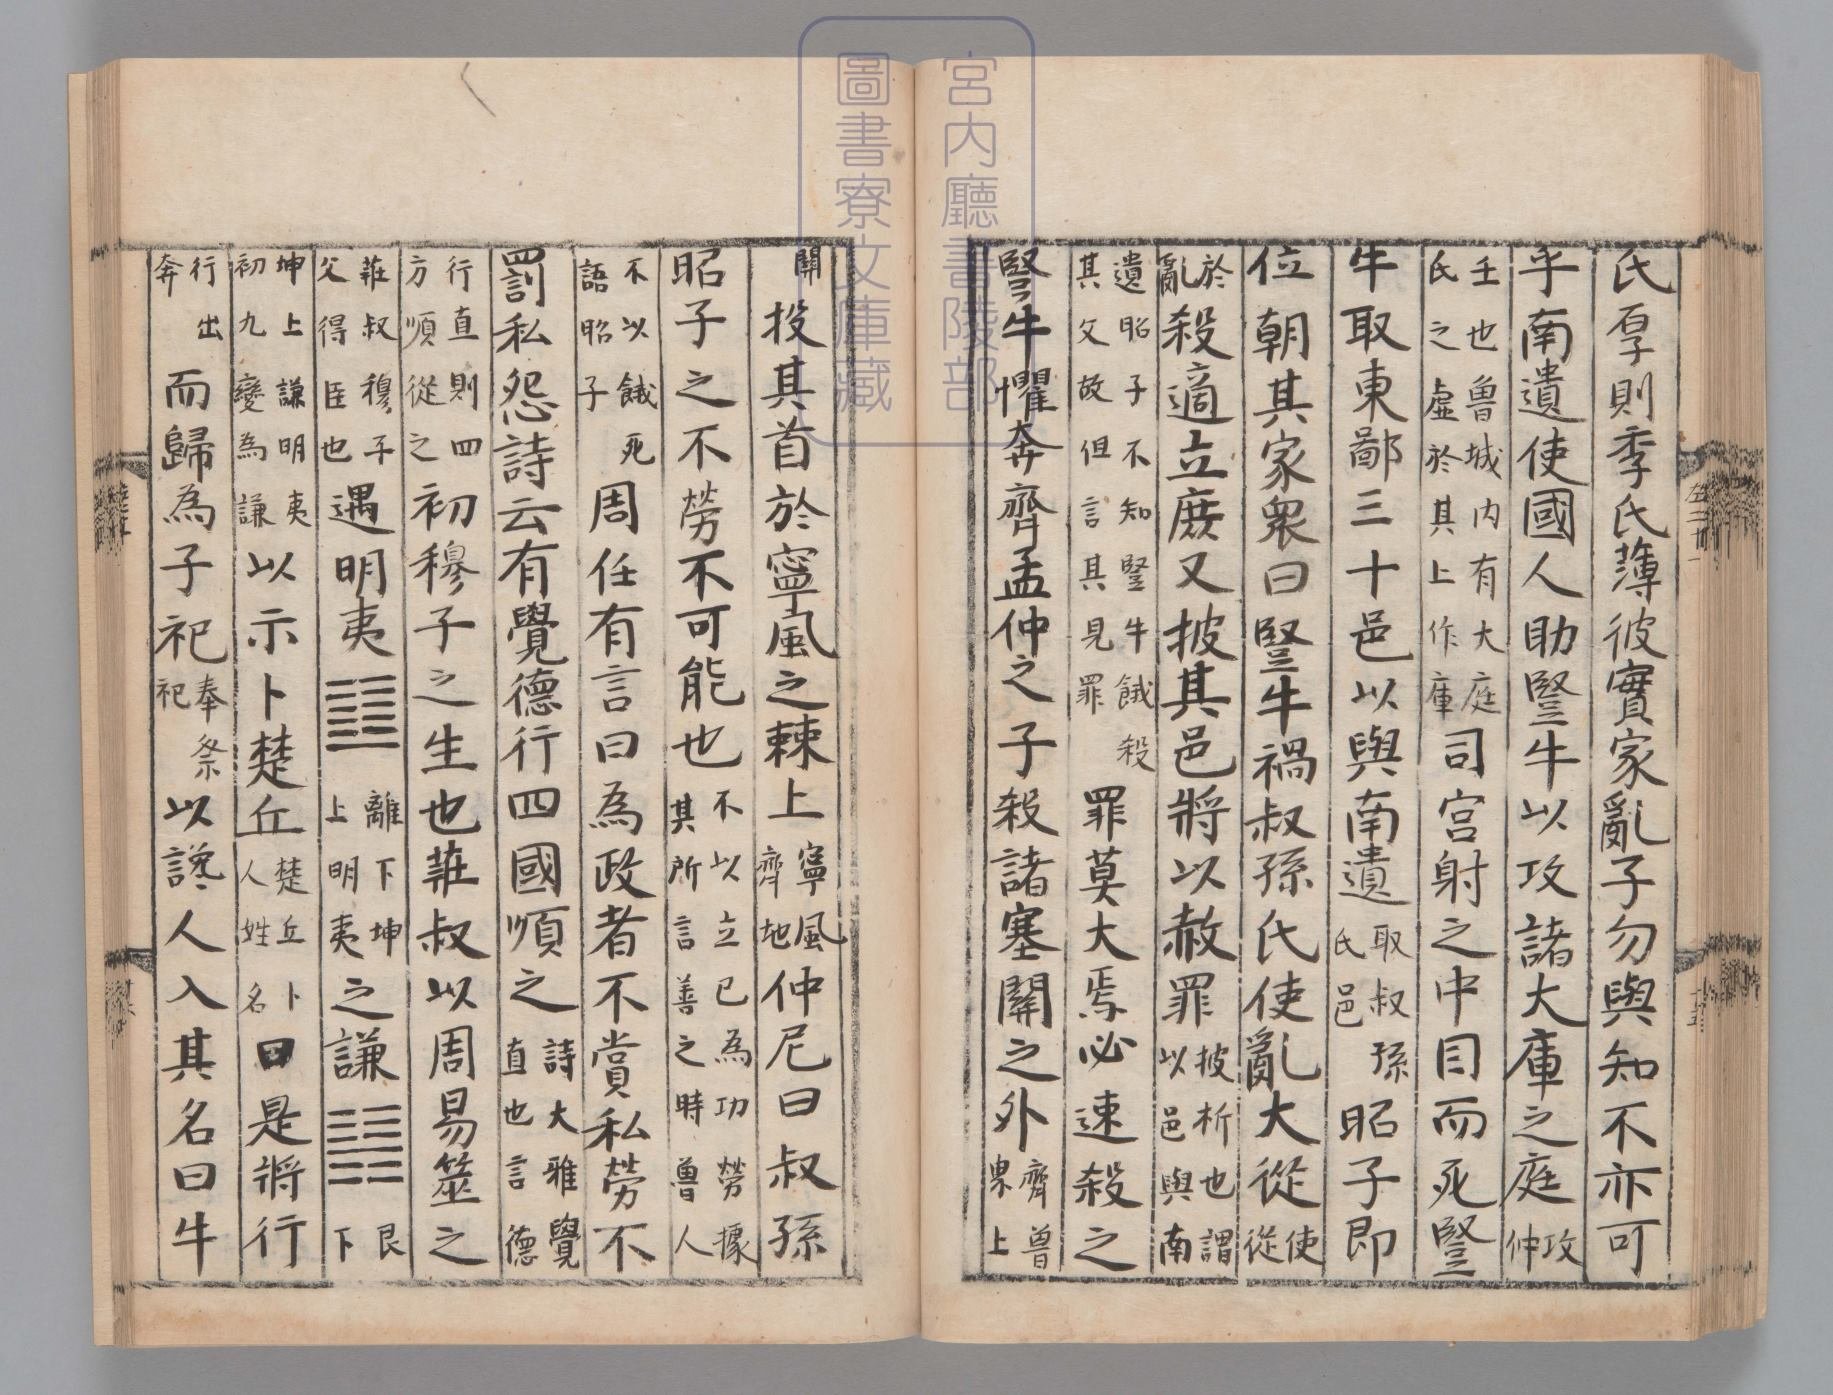 氏厚則季氏薄彼實家亂子勿與知不亦可
乎南遺使國人助豎牛以攻諸大庫之庭攻仲
壬也魯城内有大庭氏之虛於其上作庫司宮射之中目而死豎
牛取東鄙三十邑以與南遺取叔孫氏邑昭子即
位朝其家衆曰豎牛禍叔孫氏使亂大從使從
於亂殺適立庶又披其邑將以赦罪披析也謂以邑與南
遺昭子不知豎牛餓殺其父故但言其見罪罪莫大焉必速殺之
豎牛懼奔齊孟仲之子殺諸塞關之外齊魯界上
關投其首於寧風之棘上寧風齊地仲尼曰叔孫
昭子之不勞不可能也不以立已為功勞據其所言善之時魯人
不以餓死語昭子周任有言曰為政者不賞私勞不
罰私怨詩云有覺德行四國順之詩大雅覺直也言德
行直則四方順從之初穆子之生也莊叔以周易筮之
莊叔穆子父得臣也遇明夷䷣離下坤上明夷之謙䷎艮下
坤上謙明夷初九變為謙以示卜楚丘楚丘卜人姓名曰是將行
行出奔而歸為子祀奉祭祀以讒人入其名曰牛
宮内廳書陵部
圖書寮文庫藏